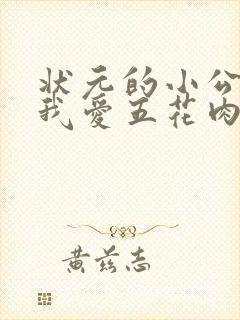 状元的小公
我爱五花肉
黄兹志